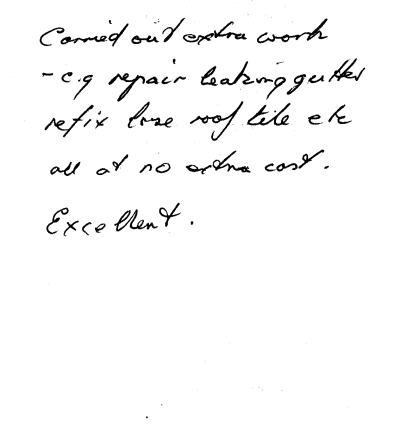 Carried out extra work
- e.g repair leaking gutter
refix loose roof tile etc
all at no extra cost.
Excellent.